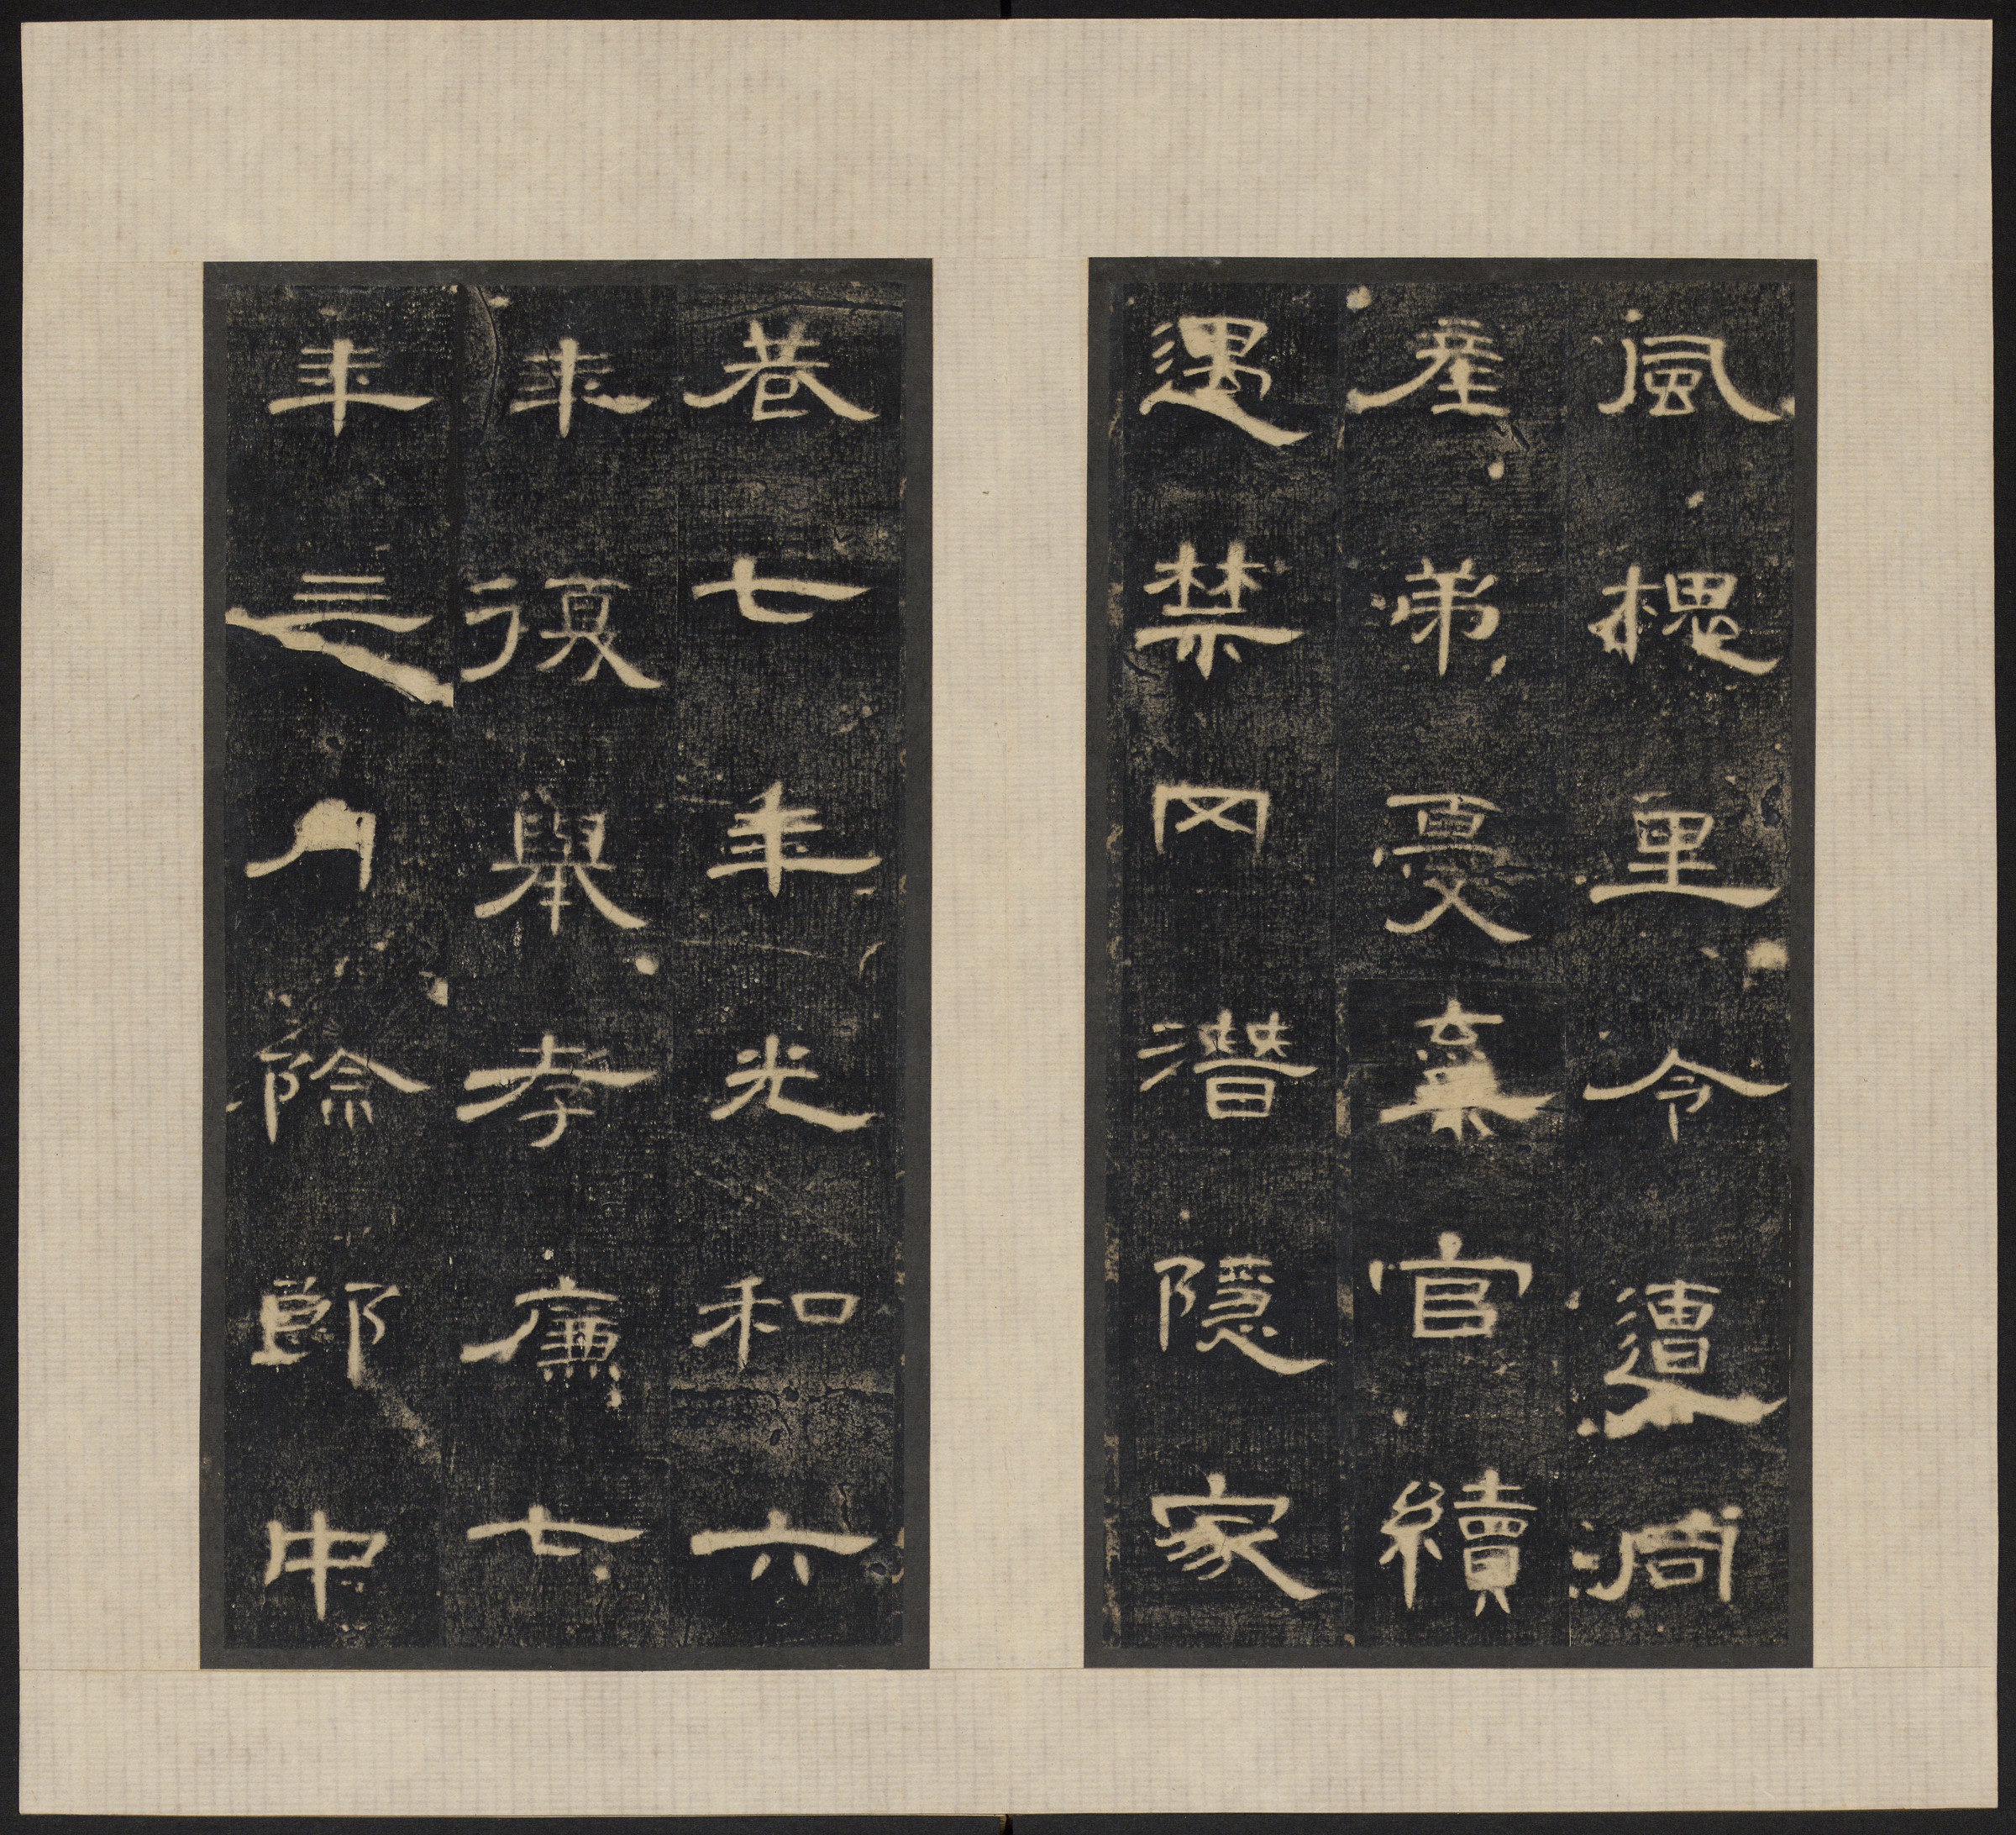 風槐里令遭同
產弟憂棄官續
遇禁罔潛隱家
巷七年光和六
年復舉孝廉七
年三月除郎中